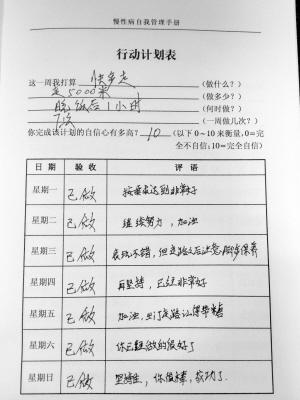 慢性病自我管理手册
行动计划表
这一周我打算 快步走 (做什么?)
走5000米 (做多少?)
晚饭后1小时 (何时做?)
7次 (一周做几次?)
你完成该计划的自信心有多高? 10 (以下0~10来衡量,0=完
全不自信;10=完全自信)
日 期 验 收 评 语
星期一 已做 按要求达到非常好
星期二 已做 继续努力,加油
星期三 已做 表现不错,但走路之后注意脚步保养
星期四 已做 再坚持,已经非常好
星期五 已做 加油,
星期六 已做 你已经做的很好了
星期日 已做 坚持住,你很棒,成功了.